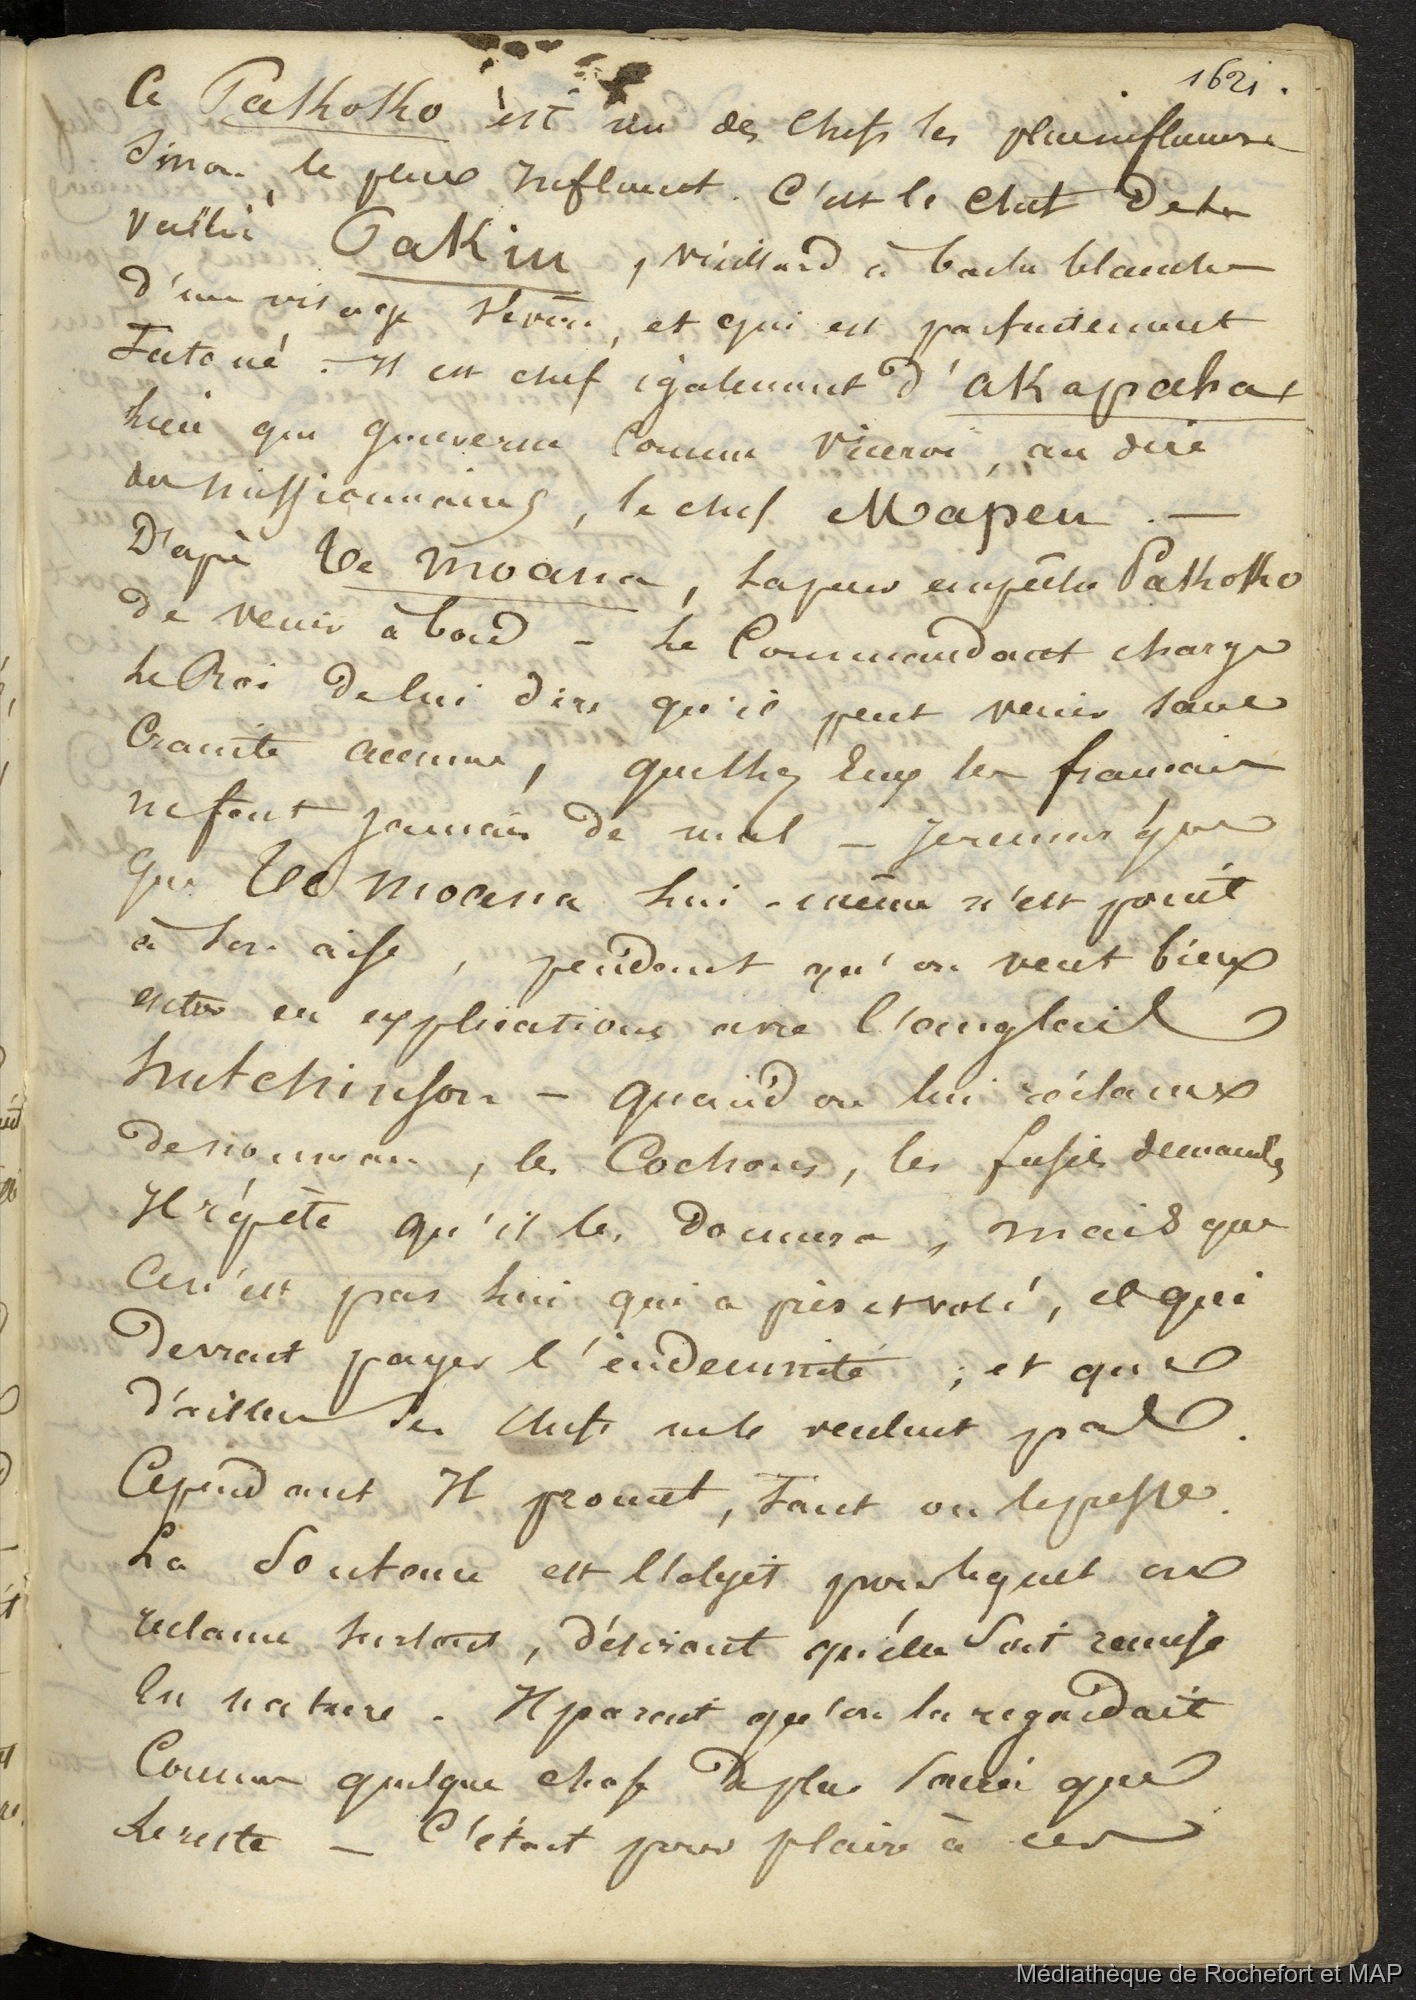 1621.
Ce Pakhokho est un des chefs les plus influens
Sinon le plus influent. C'est le chef de la
vallée Pakiu, vieillard à barbe blanche
d'un visage sévère, et qui est parfaitement
Tatoué. Il est chef également d'akapaha
lieu que gouverne comme viceroi, au dire
des missionnaires, le chef Mapeu. —
D'après Te moana, la peur empêche Pakhokho
de venir à bord – Le Commandant charge
Le Roi de lui dire qu'il peut venir sans
Crainte aucune, que chez Eux les français
ne font jamais de mal – je remarque
que Te moana lui-même n'est point
à son aise, pendant qu'on veut bien
entrer en explications avec l'anglais
hutchinson – quand on lui réclame
de nouveau, les Cochons, les fusils demandés
Il répète qu'il les donnera, mais que
Ce n'est pas lui qui a pris et volé, et qui
devrait payer l'indemnité; et que
d'ailleurs les chefs ne le veulent pas.
Cependant Il promet, tant on le presse.
La Soutane est l'objet pour lequel on
réclame surtout, désirant qu'elle soit remise
En nature. Il parait qu'on la regardait
Comme quelque chose de plus sacré que
Le reste – C'était pour plaire à ces
Médiathèque de Rochefort et MAP